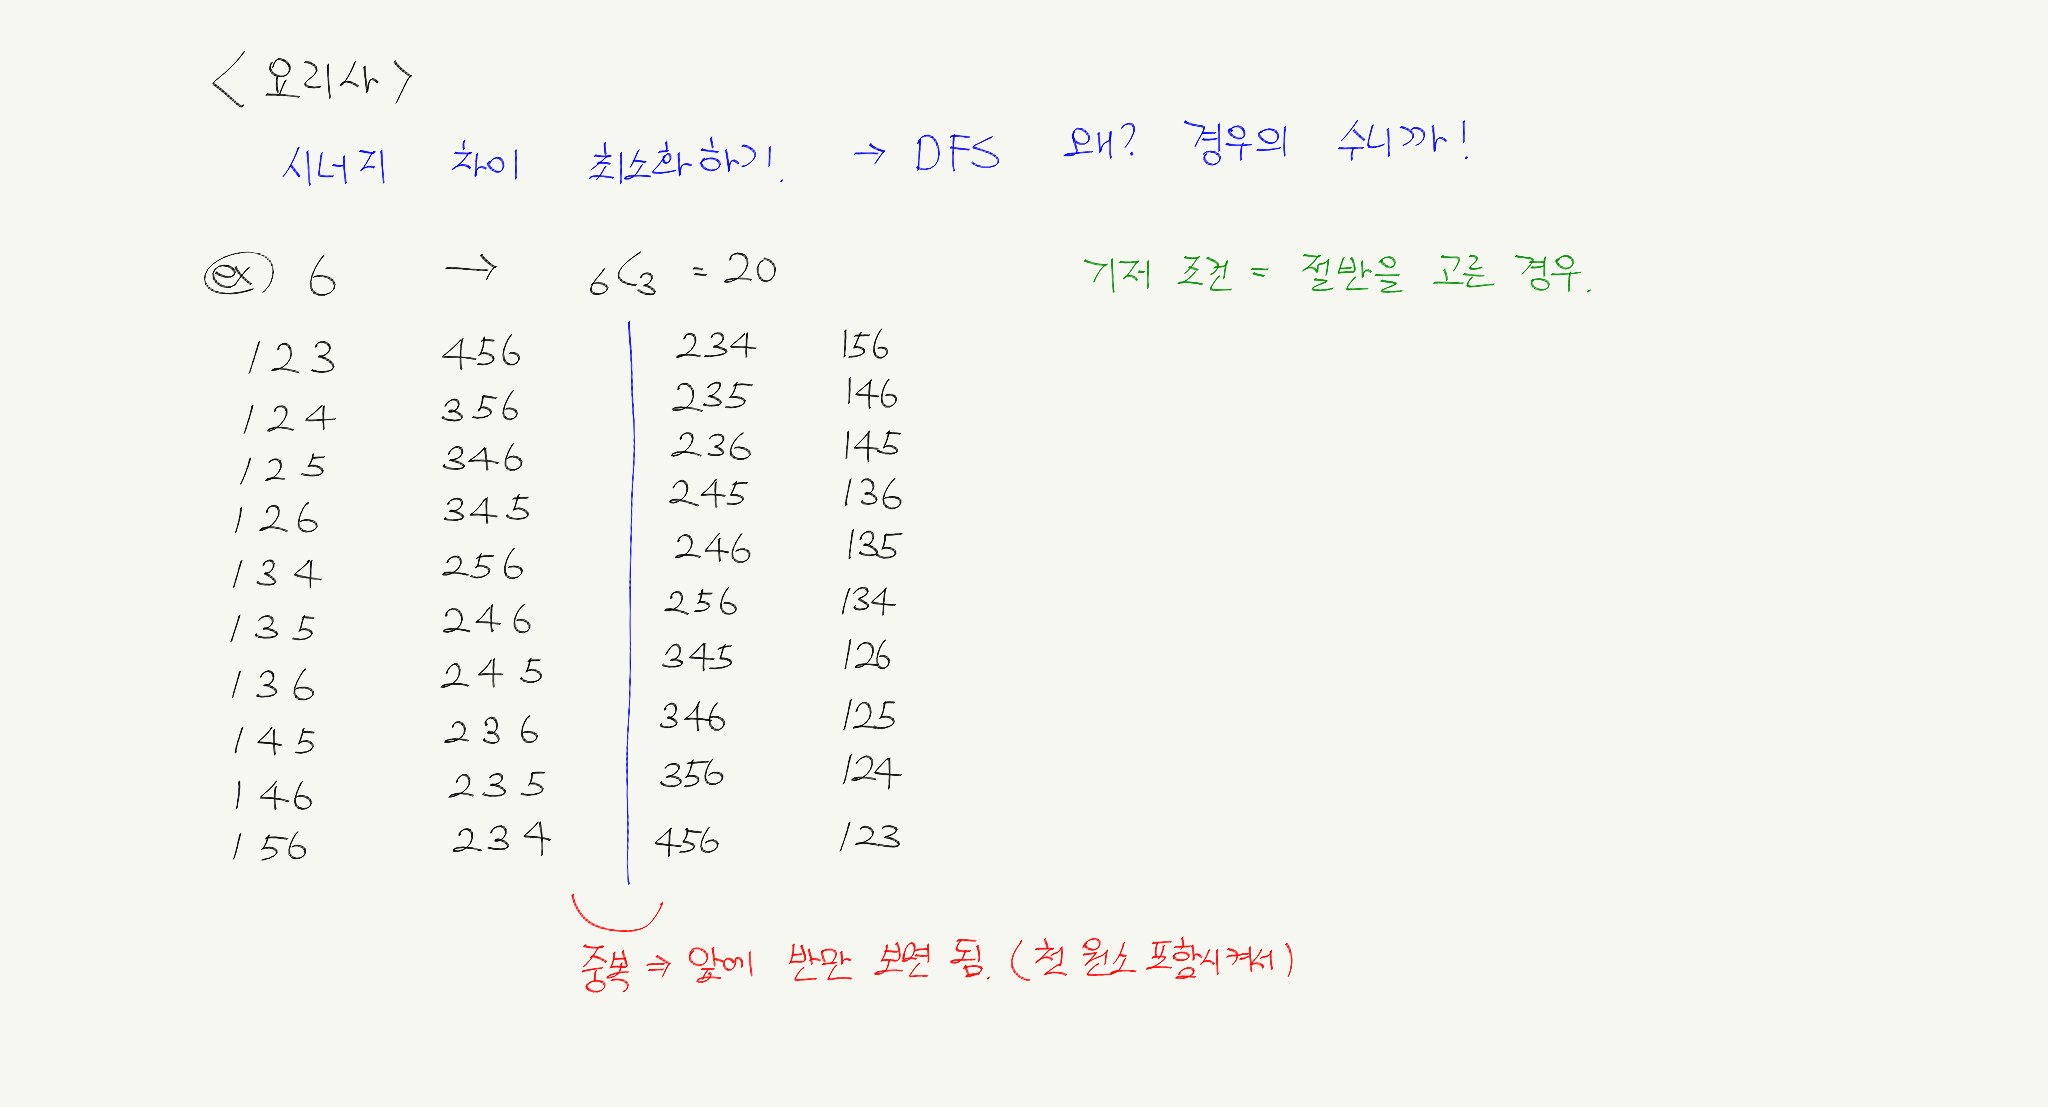 <요리사>
시너지 차이 최소화하기. → DFS 왜? 경우의 수니까!
ex) 6 → ₆C₃ = 20 기저 조건 = 절반을 고른 경우.
123 456 234 156
124 356 235 146
125 346 236 145
126 345 245 136
134 256 246 135
135 246 256 134
136 245 345 126
145 236 346 125
146 235 356 124
156 234 456 123
중복 ⇒ 앞에 반만 보면 됨. (첫 원소 포함시켜서)